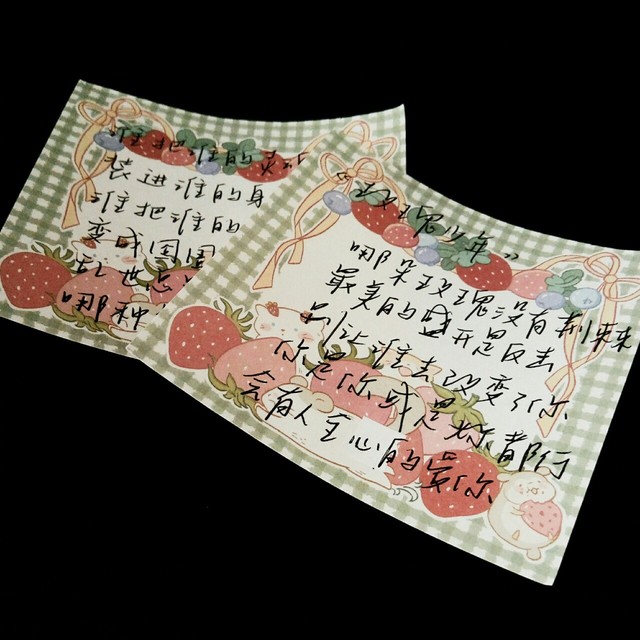 谁把谁的灵
装进谁的身
谁把谁的
变成囹圄
乱世总
哪种
“玫瑰少年”
哪朵玫瑰没有荆棘
最美的盛开是反击
别让谁去改变了你
你是你或是妳都行
会有人全心的爱你